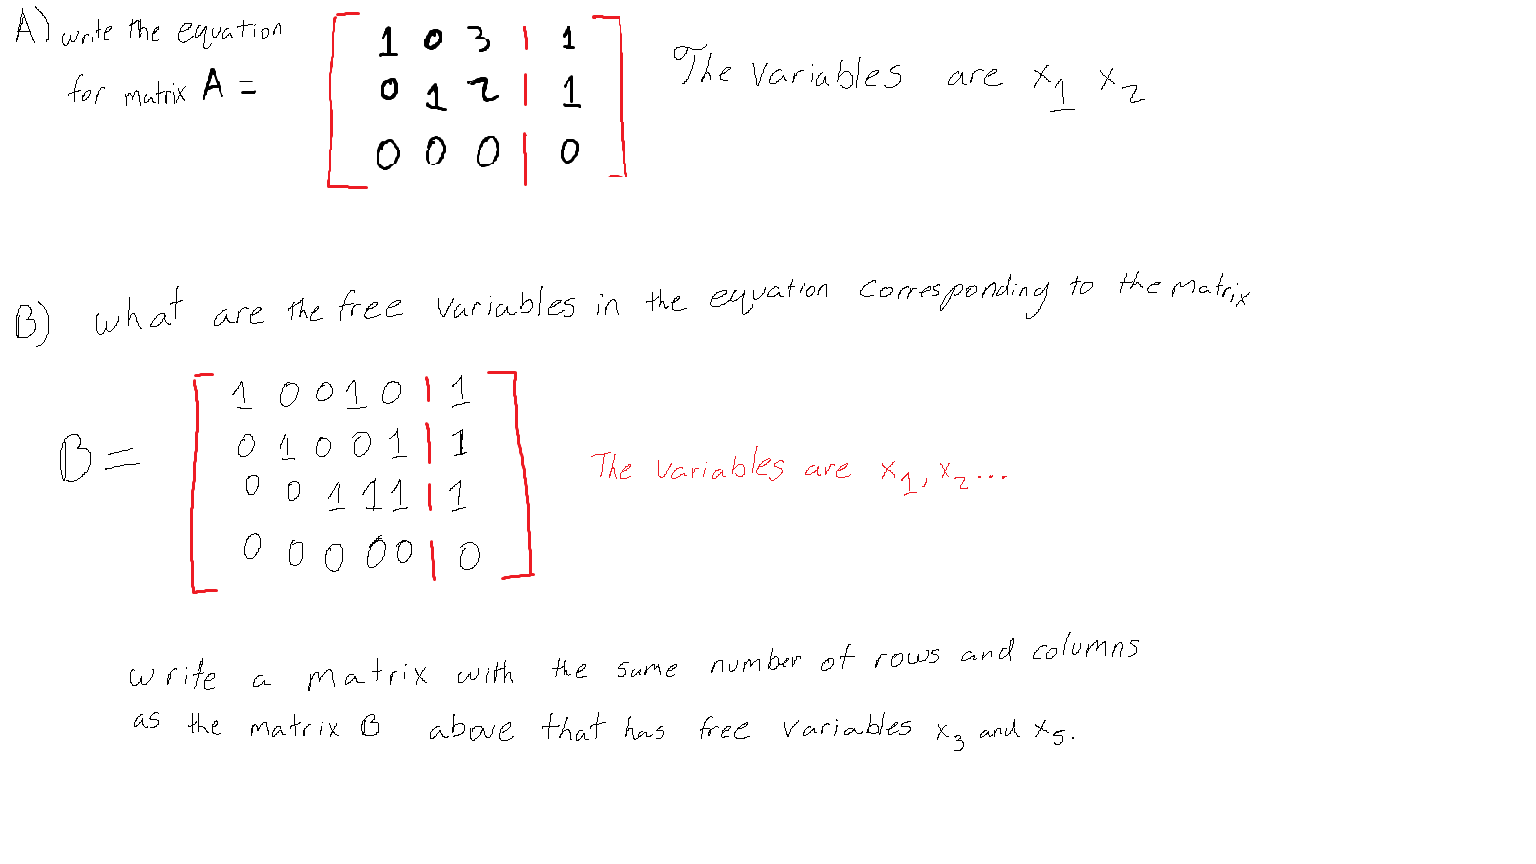 A) write the equation
for matrix A =
1 0 3 | 1
0 1 2 | 1
0 0 0 | 0
The variables are x₁ x₂
B) what are the free variables in the equation corresponding to the matrix
B =
1 0 0 1 0 | 1
0 1 0 0 1 | 1
0 0 1 1 1 | 1
0 0 0 0 0 | 0
The variables are x₁, x₂ ...
write a matrix with the same number of rows and columns
as the matrix B above that has free variables x₃ and x₅.